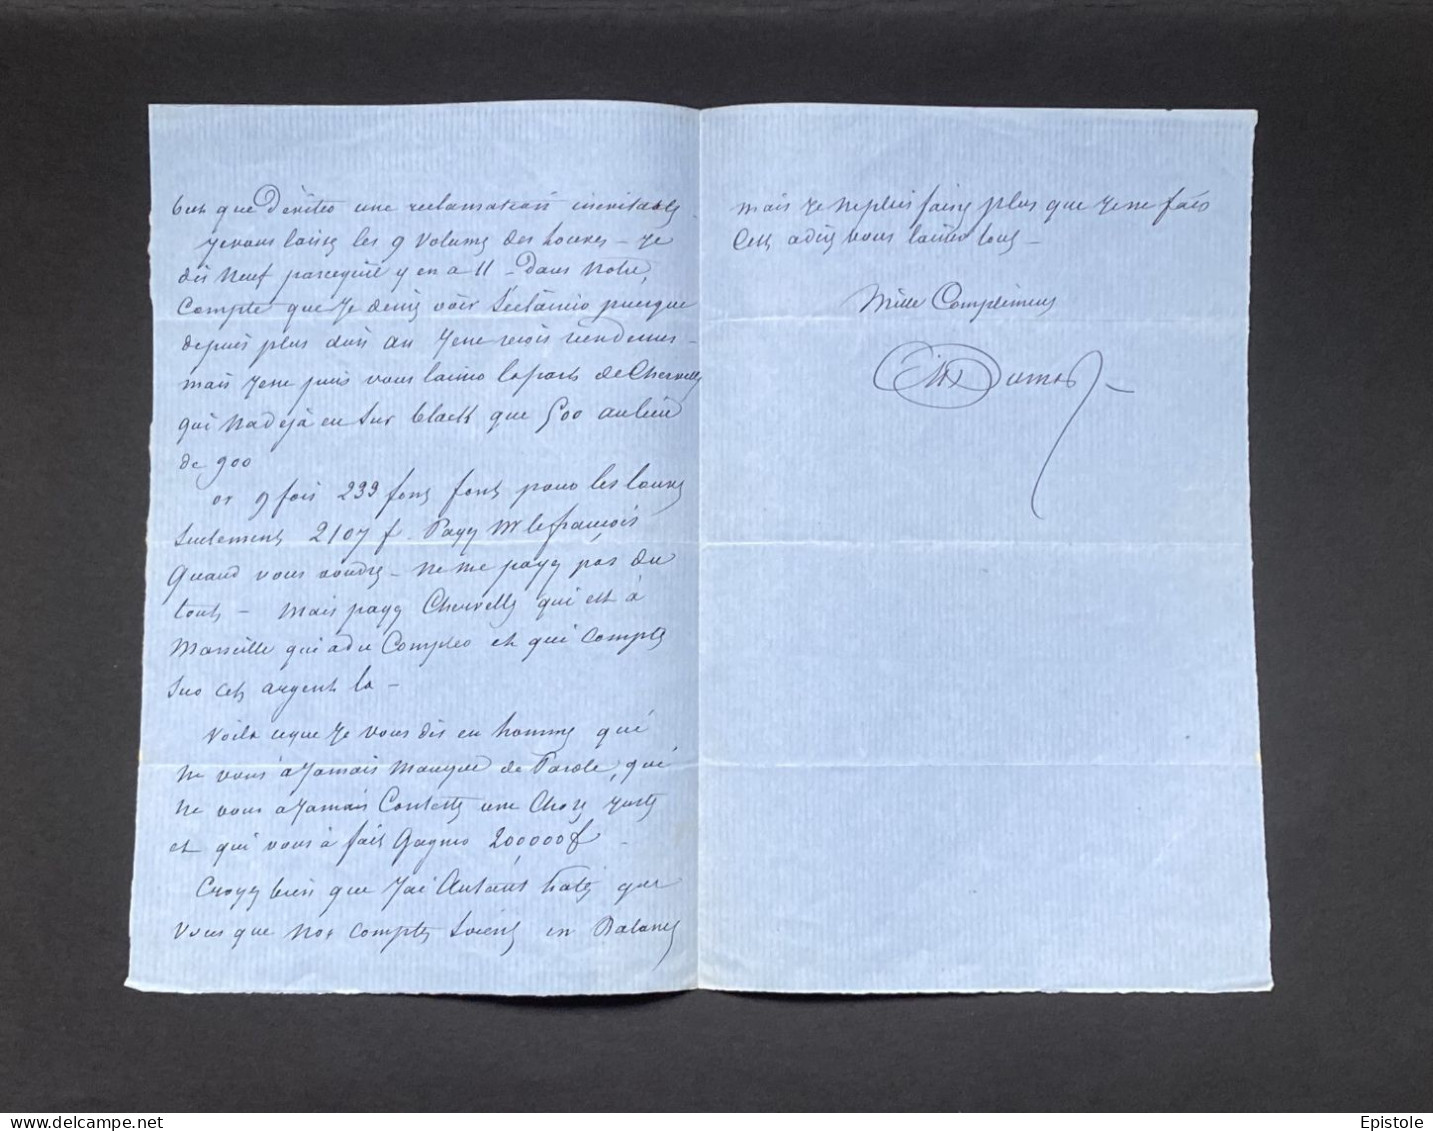 but que d'éviter une réclamation inévitable
Je vous laisse les 9 volumes des Louves – je
dis neuf parcequ'il y en a 11 – Dans notre
compte que je desire voir s'éclaircir puisque
depuis plus d'un an je ne reçois rien de vous –
mais je ne puis vous laisser la part de Cherville
qui n'a déjà eu sur Black que 500 au lieu
de 900
or 9 fois 233 fons font pour les louves
seulement 2107 f. Payez Mr lefrançois
Quand vous voudrez – ne me payez pas du
tout – mais payez Cherville qui est à
Marseille qui a du Compter et qui compte
sur cet argent la –
Voila ceque je vous dis en homme qui
ne vous a jamais manqué de Parole, qui
ne vous a jamais Contesté une Chose juste
et qui vous à fait Gagner 200000f
Croyez bien que j'ai Autant hate que
Vous que nos comptes soient en Balance
mais je ne puis faire plus que je ne fais
C'est à dire vous laisser tout –
Mille Complimens
Alex Dumas
Epistole